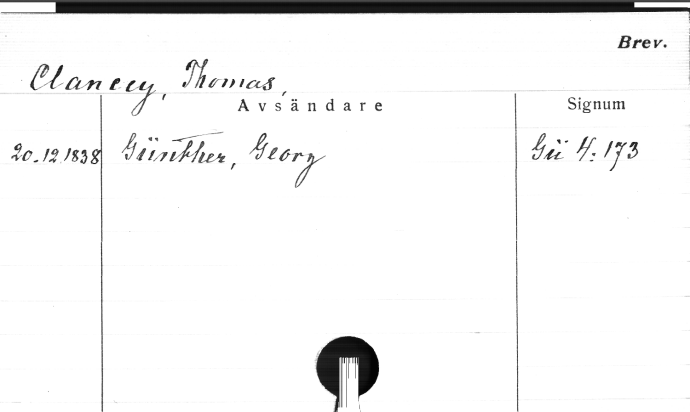 Brev.
Clancey, Thomas,
Avsändare Signum
20.12.1838 Günther, Georg Gü 4:173